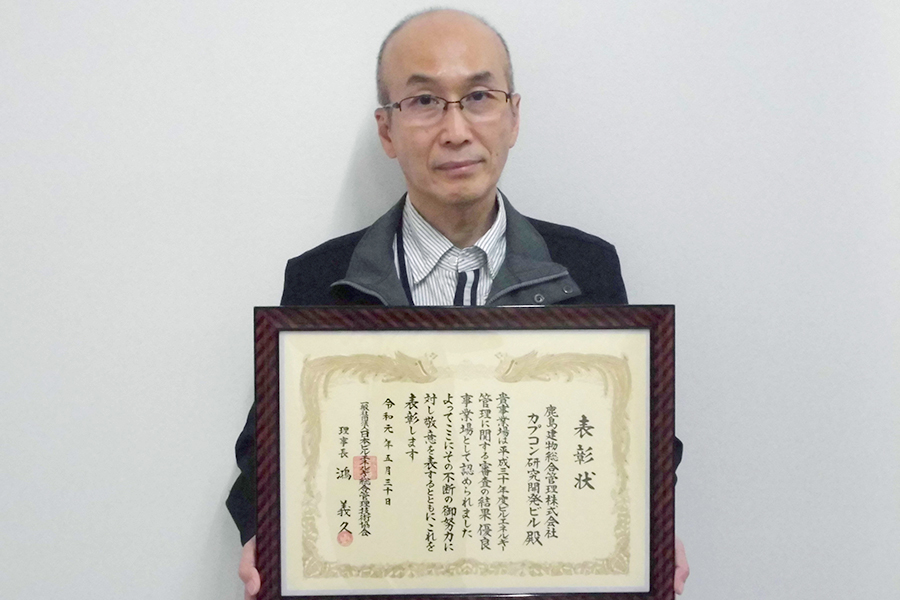 表彰状
鹿島建物総合管理株式会社
カプコン研究開発ビル殿
貴事業場は平成三十年度ビルエネルギー
管理に関する審査の結果優良
事業場として認められました
よってここにその不断の御努力に
対し敬意を表するとともにこれを
表彰します
令和元年五月三十日
一般社団法人日本ビルエネルギー総合管理技術協会
理事長 鴻義久